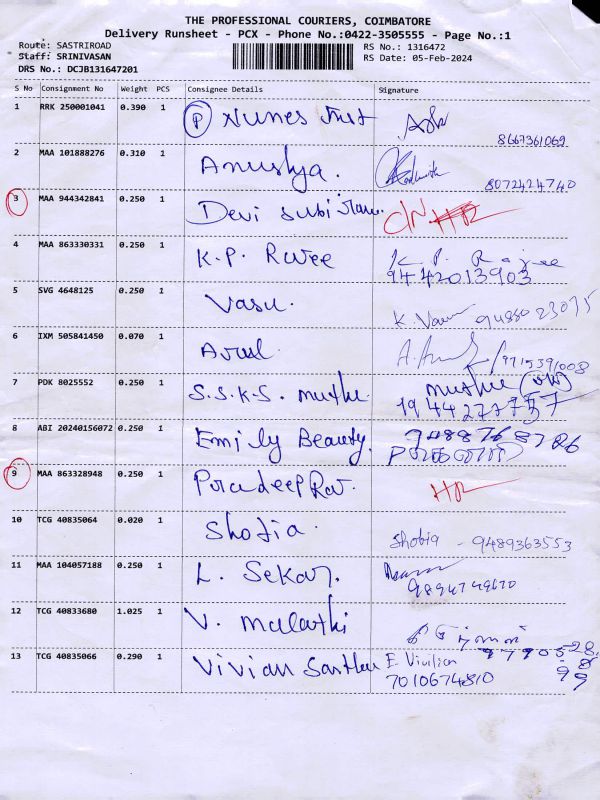 THE PROFESSIONAL COURIERS, COIMBATORE
Delivery Runsheet - PCX - Phone No.:0422-3505555 - Page No.:1
Route: SASTRIROAD
RS No.: 1316472
Staff: SRINIVASAN
RS Date: 05-Feb-2024
DRS No.: DCJB131647201
S No Consignment No Weight PCS Consignee Details Signature
1 RRK 250001041 0.390 1 P Nunes Trust
8667361069
2 MAA 101888276 0.310 1 Anushya.
8072424740
3 MAA 944342841 0.250 1 Devi Subiram.
4 MAA 863330331 0.250 1 K.P. Rajee K. P. Rajee
9442013903
5 SVG 4648125 0.250 1 Vasu.
6 IXM 505841450 0.070 1 Arul
9715391008
7 PDK 8025552 0.250 1 S.S.K.S. muthu
1944277737
8 ABI 20240156072 0.250 1 Emily Beauty. 9488768786
9 MAA 863328948 0.250 1 Pradeep
10 TCG 40835064 0.020 1 Shobia. Shobia - 9489363553
11 MAA 104057188 0.250 1 L. Sekar.
9894749670
12 TCG 40833680 1.025 1 V. Malathi
13 TCG 40835066 0.290 1 Vivian
7010674810